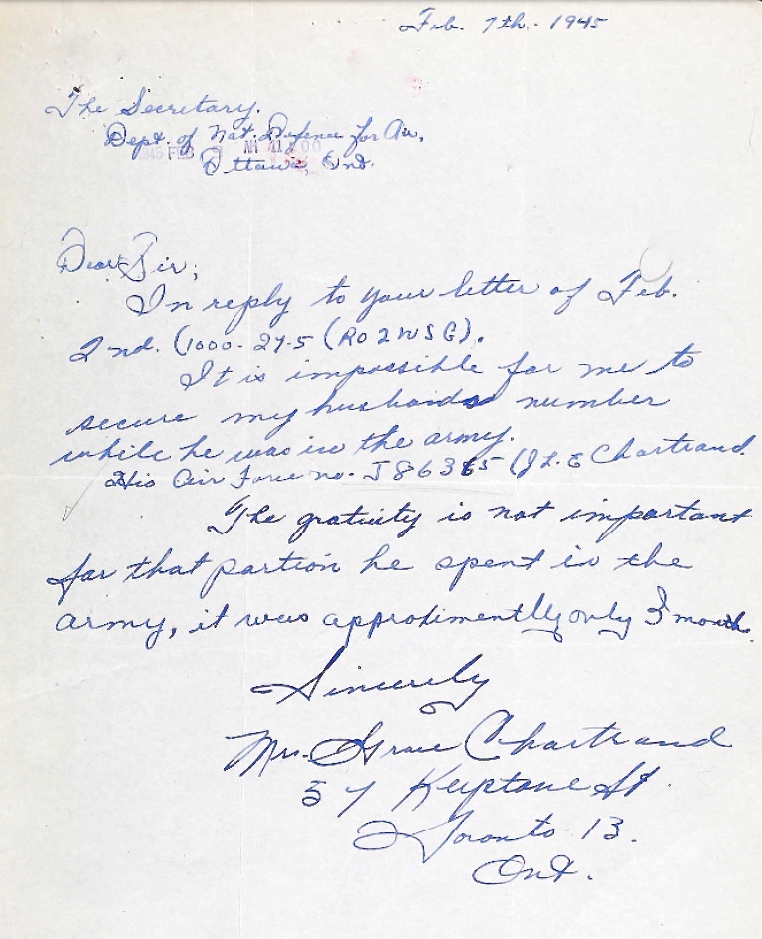 Feb. 7th. 1945
The Secretary.
Dept. of Nat. Defence for Air,
FEB AM 11 00
Ottawa, Ont.
Dear Sir;
In reply to your letter of Feb.
2nd. (1000-27-5 (RO2WSG).
It is impossible for me to
secure my husbands number
while he was in the army.
His Air Force no. J86365 (J.L.E Chartrand
The gratuity is not important
for that portion he spent in the
army, it was approdimentlly only 3 month.
Sincerly
Mrs. Grace Chartrand
57 Keystone St.
Toronto 13.
Ont.